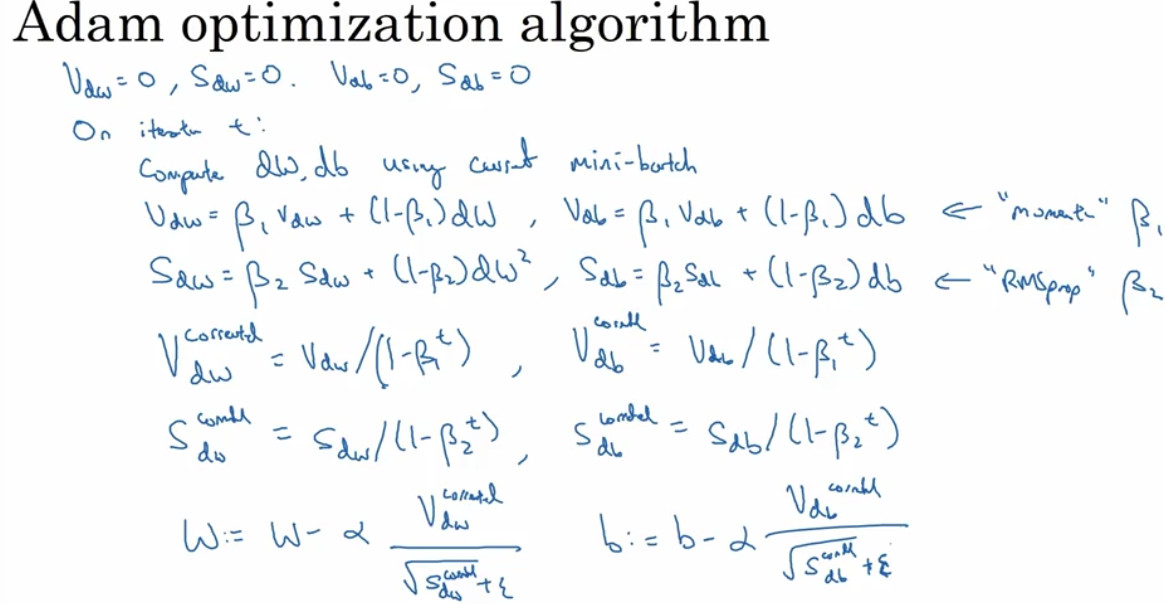 Adam optimization algorithm
V_dw = 0, S_dw = 0. V_db = 0, S_db = 0
On iteration t:
Compute dW, db using current mini-batch
V_dw = β₁ V_dw + (1-β₁) dW , V_db = β₁ V_db + (1-β₁) db ← "momentum" β₁
S_dw = β₂ S_dw + (1-β₂) dW² , S_db = β₂ S_db + (1-β₂) db ← "RMSprop" β₂
V_dw^corrected = V_dw / (1-β₁^t) , V_db^corrected = V_db / (1-β₁^t)
S_dw^corrected = S_dw / (1-β₂^t) , S_db^corrected = S_db / (1-β₂^t)
W := W - α V_dw^corrected / (√S_dw^corrected + ε)  b := b - α V_db^corrected / (√S_db^corrected + ε)